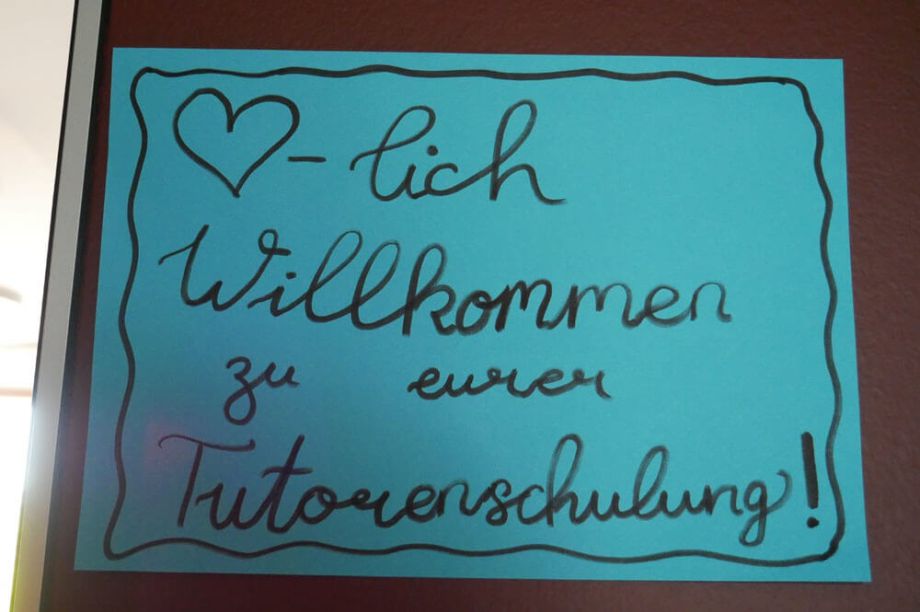 ♡-lich
Willkommen
zu eurer
Tutorenschulung!